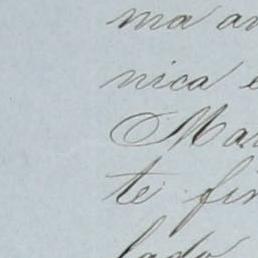 ma a
nica e
Mar
te fin
lado